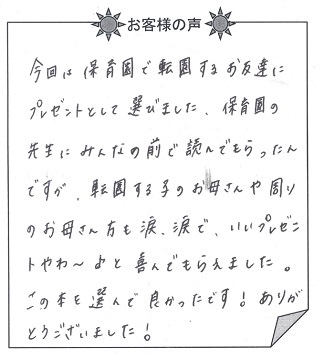 お客様の声
今回は保育園で転園するお友達に
プレゼントとして選びました、保育園の
先生にみんなの前で読んでもらったん
ですが、転園する子のお母さんや周り
のお母さん方も涙、涙で、いいプレゼン
トやわ〜♪と喜んでもらえました。
この本を選んで良かったです！ありが
とうございました！